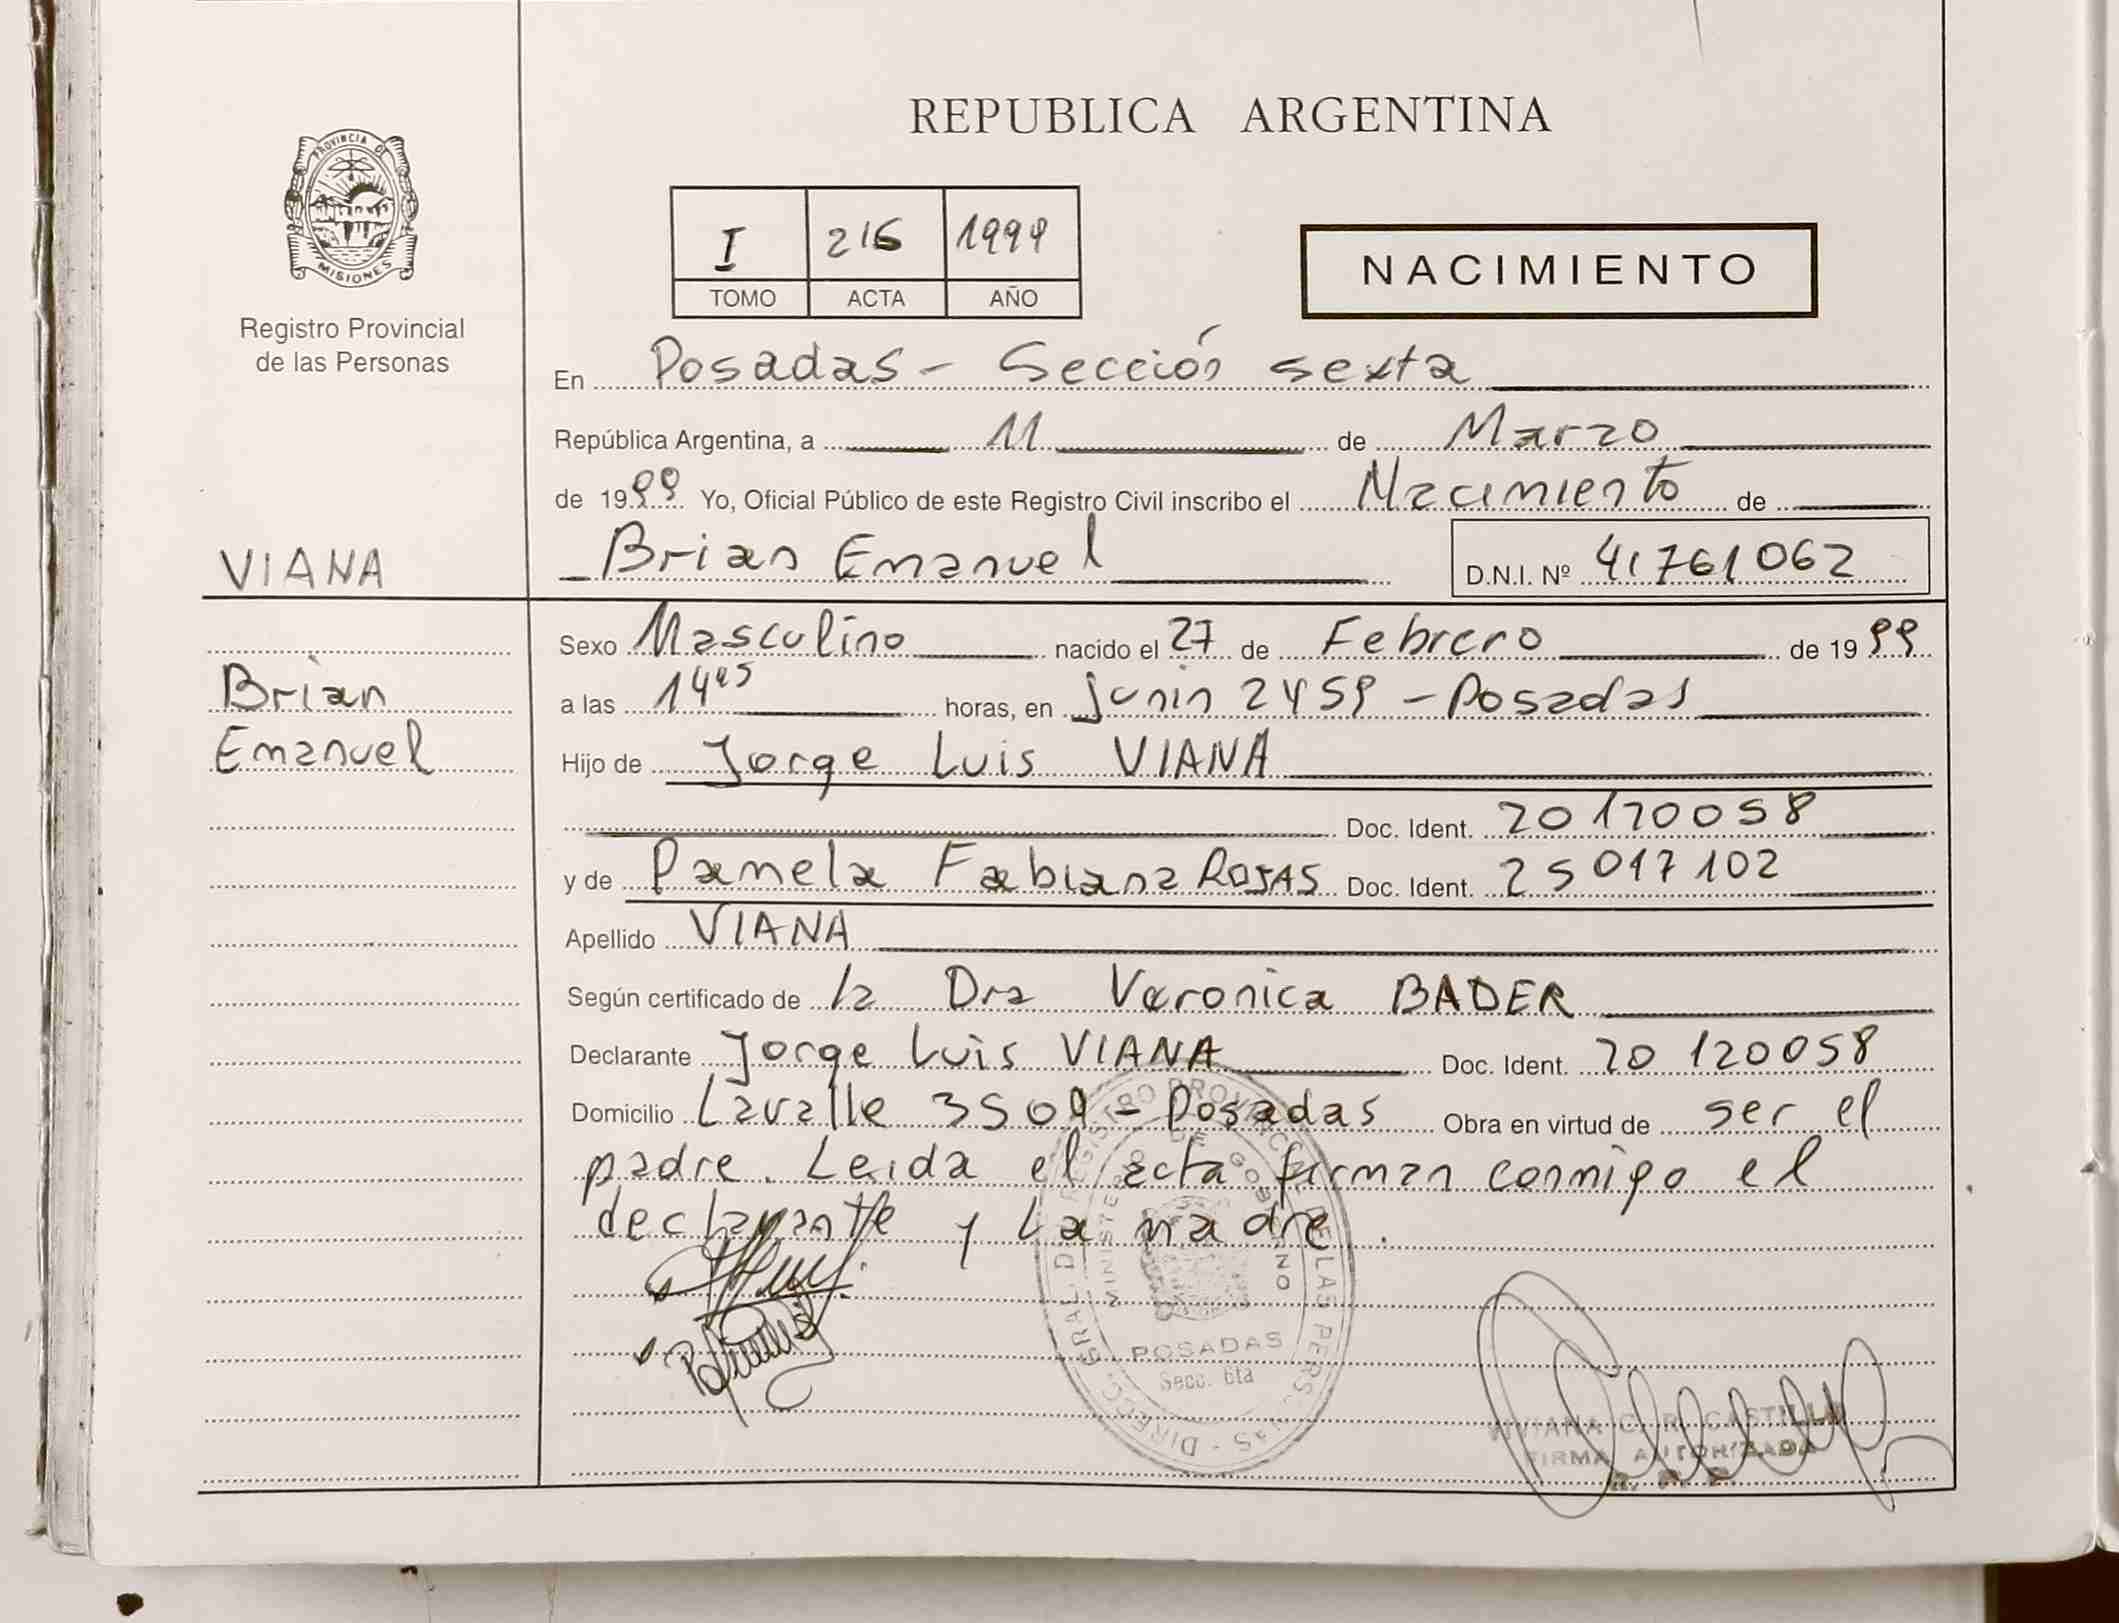 PROVINCIA DE
MISIONES
Registro Provincial
de las Personas
VIANA
Brian
Emanuel
REPUBLICA ARGENTINA
I 216 1999
TOMO ACTA AÑO
NACIMIENTO
En Posadas - Sección sexta
República Argentina, a 11 de Marzo
de 1999 Yo, Oficial Público de este Registro Civil inscribo el Nacimiento de
Brian Emanuel D.N.I. Nº 41761062
Sexo Masculino nacido el 27 de Febrero de 1999
a las 14 05 horas, en Junin 2459 - Posadas
Hijo de Jorge Luis VIANA
Doc. Ident. 20120058
y de Pamela Fabiana ROJAS Doc. Ident. 25017102
Apellido VIANA
Según certificado de la Dra Veronica BADER
Declarante Jorge Luis VIANA Doc. Ident. 20 120058
Domicilio Lavalle 3509 - Posadas Obra en virtud de ser el
padre. Leida el acta firman conmigo el
declarante y La madre.
DIRECC. GRAL. DE REGISTRO PROVINCIAL DE LAS PERSONAS
MINISTERIO DE GOBIERNO
POSADAS
Secc. 6ta
CASTILLO
FIRMA AUTORIZADA